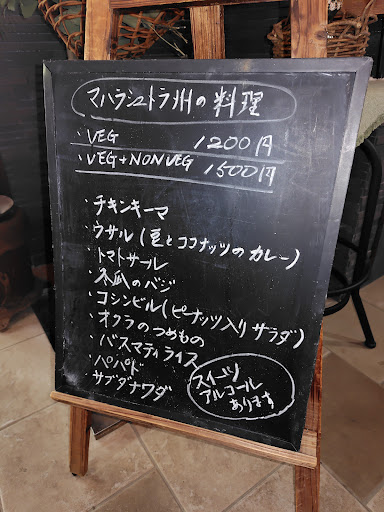 マハラシュトラ州の料理
・VEG 1200円
・VEG+NONVEG 1500円
・チキンキーマ
・ウサル(豆とココナッツのカレー)
・トマトサール
・冬瓜のバジ
・コシンビル(ピーナッツ入りサラダ)
・オクラのつめもの
・バスマティライス
・パパド
・サブダナワダ
スイーツ
アルコール
あります